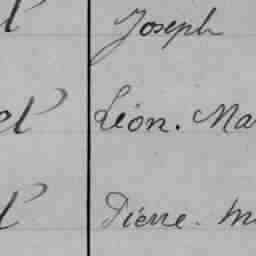 Joseph
Léon. Ma
Pierre. M